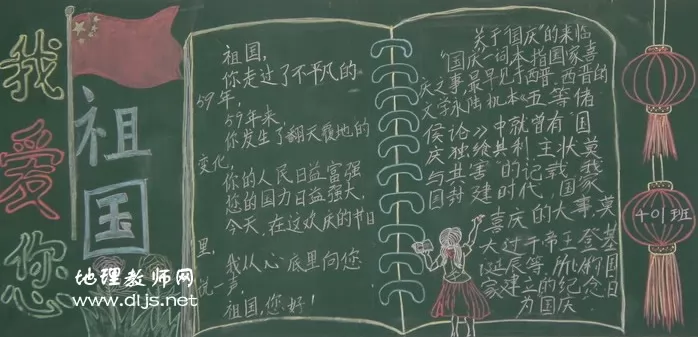 我爱您
祖国
祖国,
你走过了不平凡的
59年,
59年来,
你发生了翻天覆地的
变化,
你的人民日益富强
您的国力日益强大,
今天,在这欢庆的节日
里,
我从心底里向您
说一声,
祖国,您好!
关于“国庆”的来临
“国庆”一词本指国家喜
庆之事,最早见于西晋,西晋的
文学
陆机
《五等诸
侯论》中就曾有“国
庆独飨其利,主
忧莫
与其害”的记载,我
国封建时代,国家
喜庆的大事,莫
大过于帝王登基
诞辰等,
国
家建立的纪念日
为国庆
401班
地理教师网
www.dljs.net